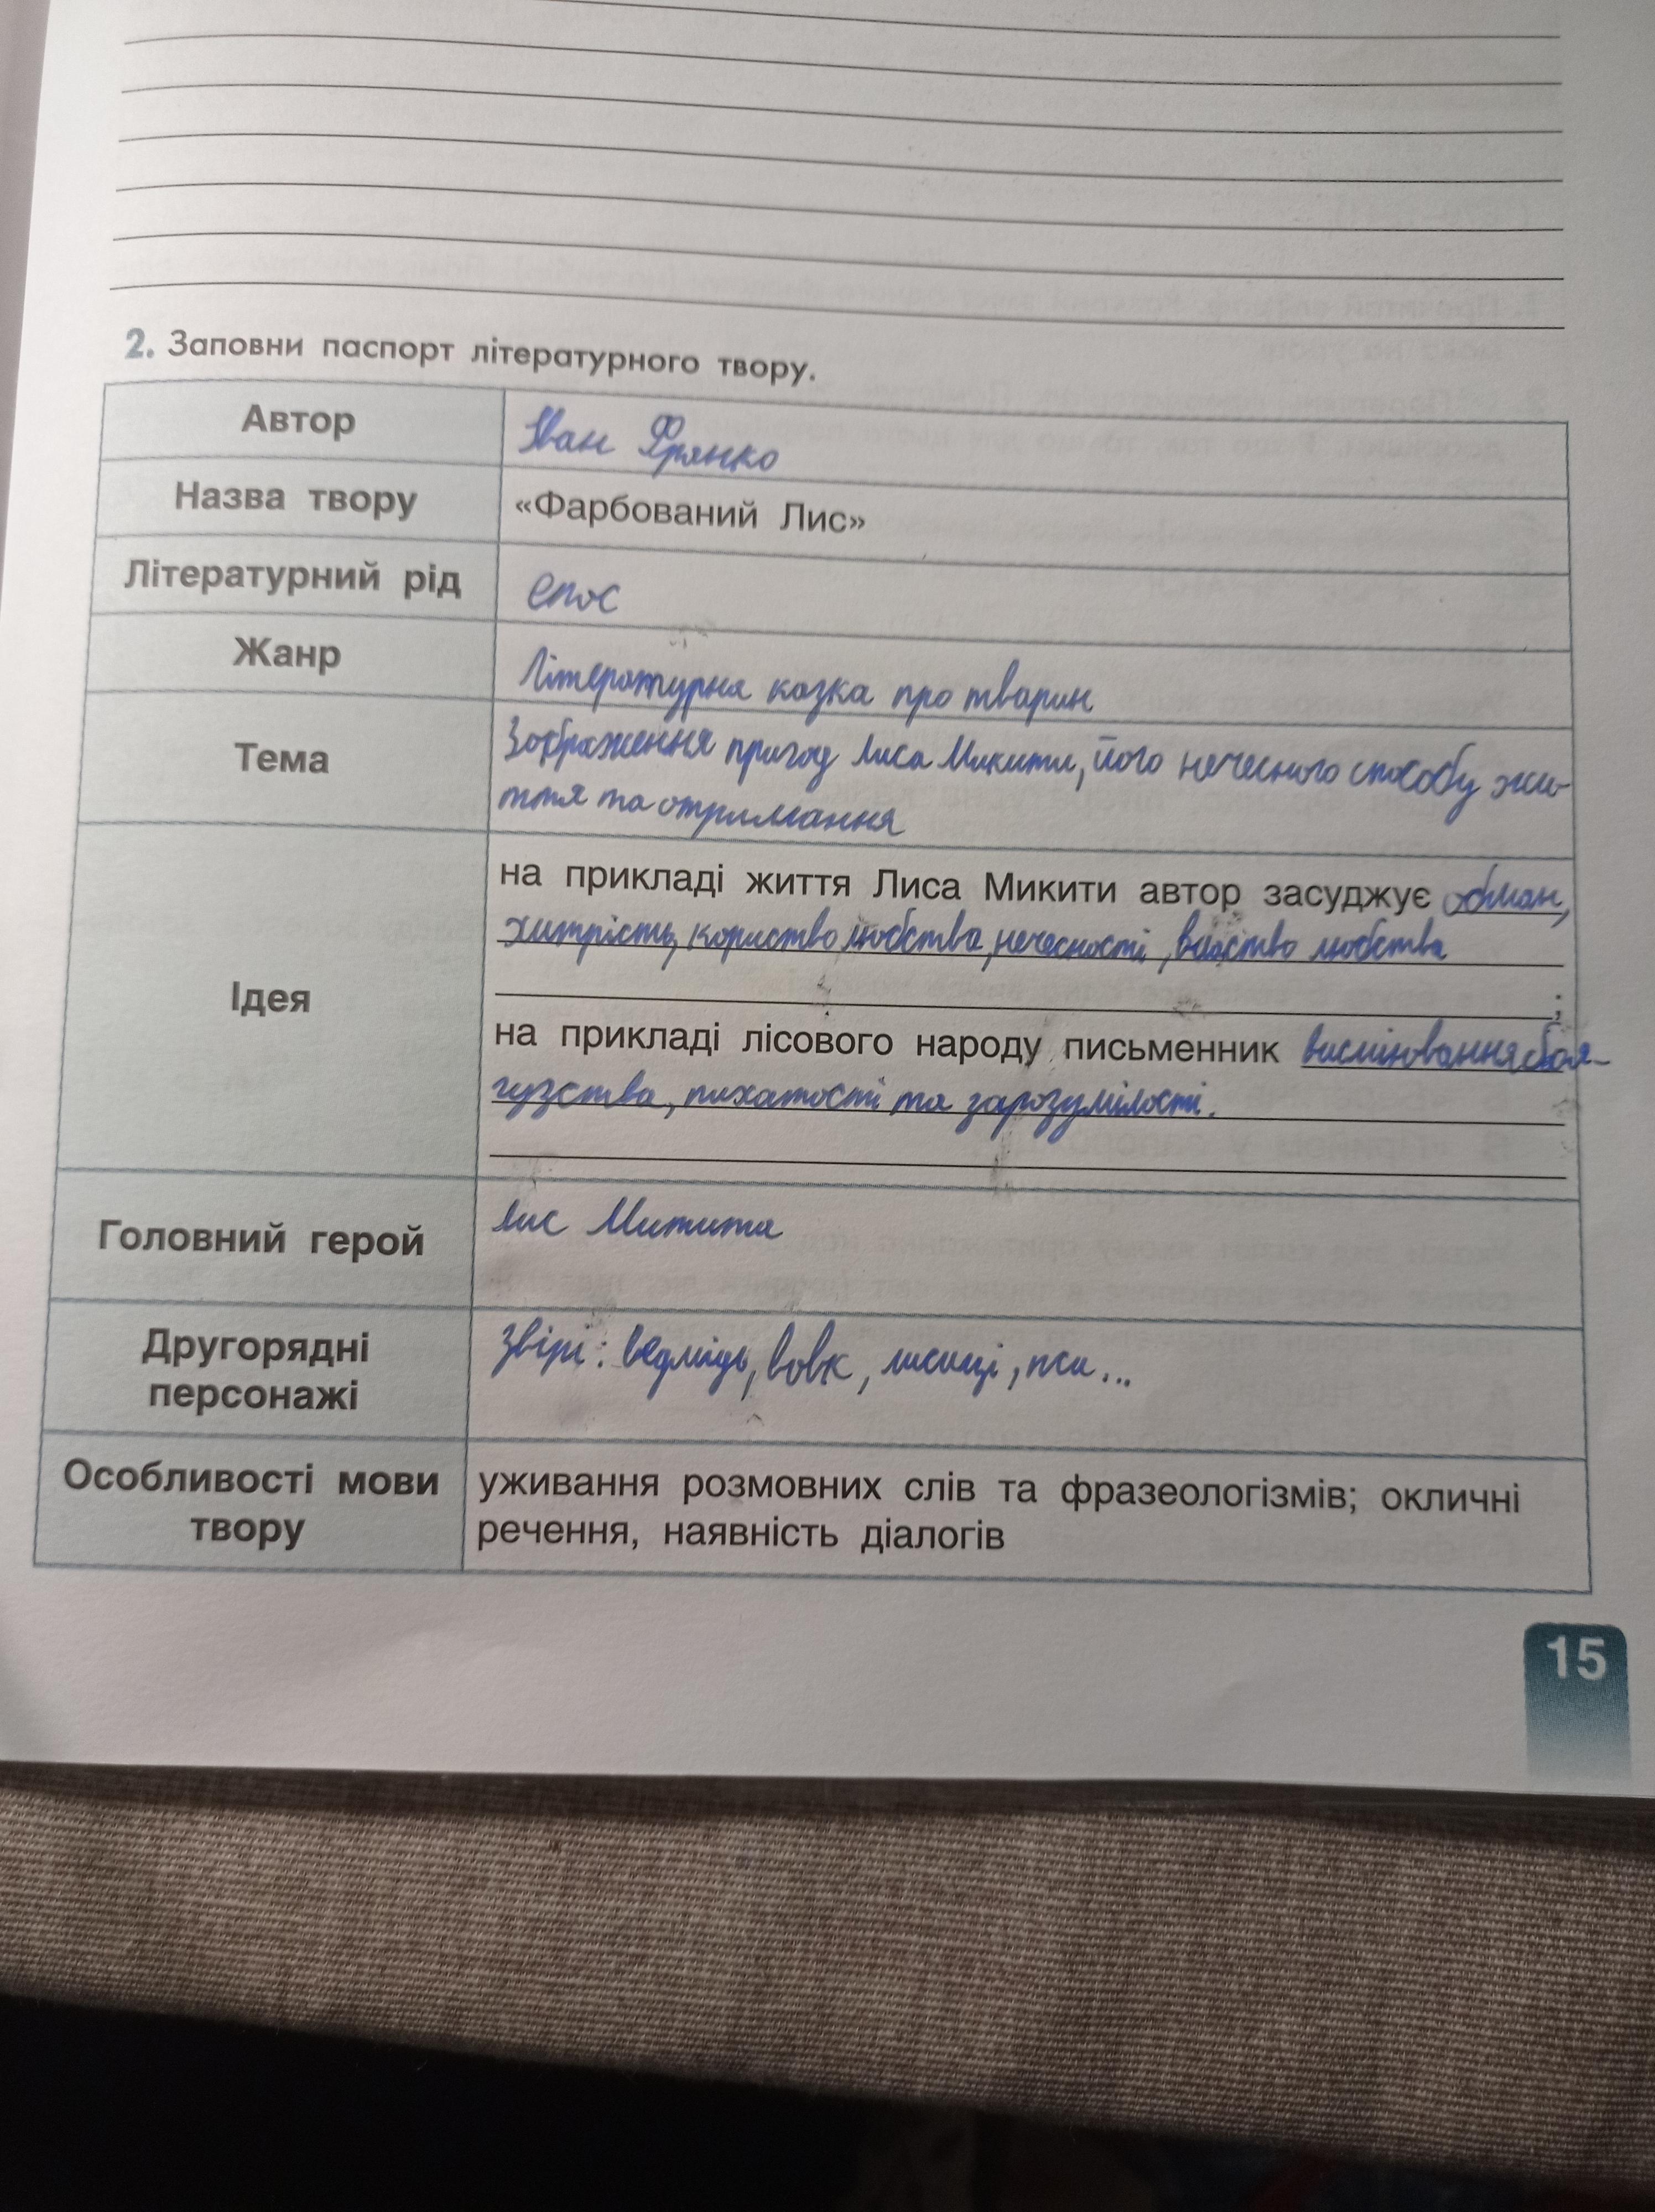 2. Заповни паспорт літературного твору.
Автор
Іван Франко
Назва твору
«Фарбований Лис»
Літературний рід
епос
Жанр
Літературна казка про тварин
Тема
Зображення пригод Лиса Микити, його нечесного способу жи-
ття та отримання
Ідея
на прикладі життя Лиса Микити автор засуджує обман,
хитрість, користво любства, нечесності, владство любства
;
на прикладі лісового народу письменник висміювання боя-
гузства, пихатості та зарозумілості.
Головний герой
Лис Митита
Другорядні
персонажі
Звірі: ведмідь, вовк, лисиці, пси...
Особливості мови
твору
уживання розмовних слів та фразеологізмів; окличні
речення, наявність діалогів
15